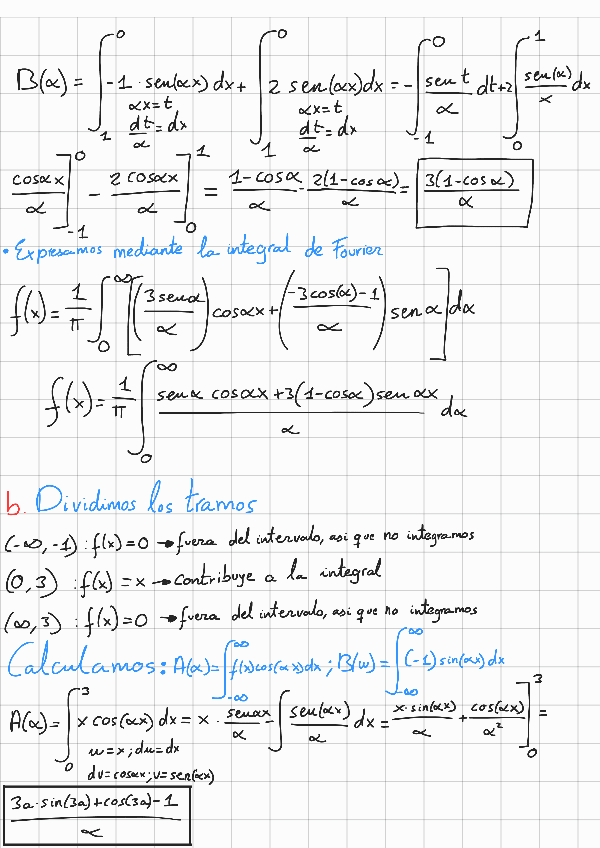 B(α) = ∫_1^0 -1 · sen(αx) dx + ∫_1^0 2 sen(αx) dx = -∫_{-1}^0 sen t / α dt + 2∫_0^1 sen(α) / x dx
αx = t αx = t
dt/α = dx dt/α = dx
cosαx / α ]_{-1}^0 - 2 cosαx / α ]_0^1 = 1 - cosα / α - 2(1 - cosα) / α = 3(1 - cos α) / α
• Expresamos mediante la integral de Fourier
f(x) = 1/π ∫_0^∞ [(3 senα / α) cosαx + (-3cos(α) - 1 / α) sen α] dα
f(x) = 1/π ∫_0^∞ senα cosαx + 3(1 - cosα) sen αx / α dα
b. Dividimos los tramos
(-∞, -1) : f(x) = 0 → fuera del intervalo, asi que no integramos
(0, 3) : f(x) = x → contribuye a la integral
(∞, 3) : f(x) = 0 → fuera del intervalo, asi que no integramos
Calculamos: A(α) = ∫_{-∞}^∞ f(x) cos(αx) dx ; B(w) = ∫_{-∞}^∞ (-1) sin(αx) dx
A(α) = ∫_0^3 x cos(αx) dx = x · senαx / α - ∫ sen(αx) / α dx = x · sin(αx) / α + cos(αx) / α² ]_0^3 =
u = x ; du = dx
dv = cosαx ; v = sen(αx)
3a · sin(3a) + cos(3a) - 1 / α